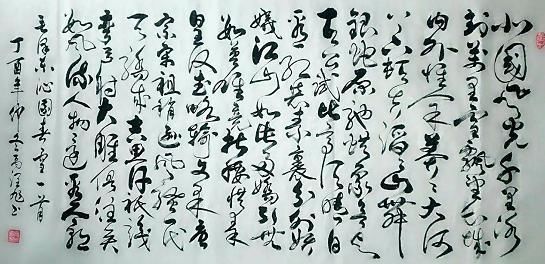 北國风光千里冰
封万里雪飘望长城
内外惟余莽莽大河
上下顿失滔滔山舞
银蛇原驰蜡象欲与
天公试比高须晴日
看红装素裹分外妖
娆江山如此多娇引无
数英雄竞折腰惜秦
皇汉武略输文采唐
宗宋祖稍逊风骚一代
天骄成吉思汗只识
弯弓射大雕俱往矣
数风流人物还看今朝
毛泽东沁园春雪一首
丁酉年仲冬 书